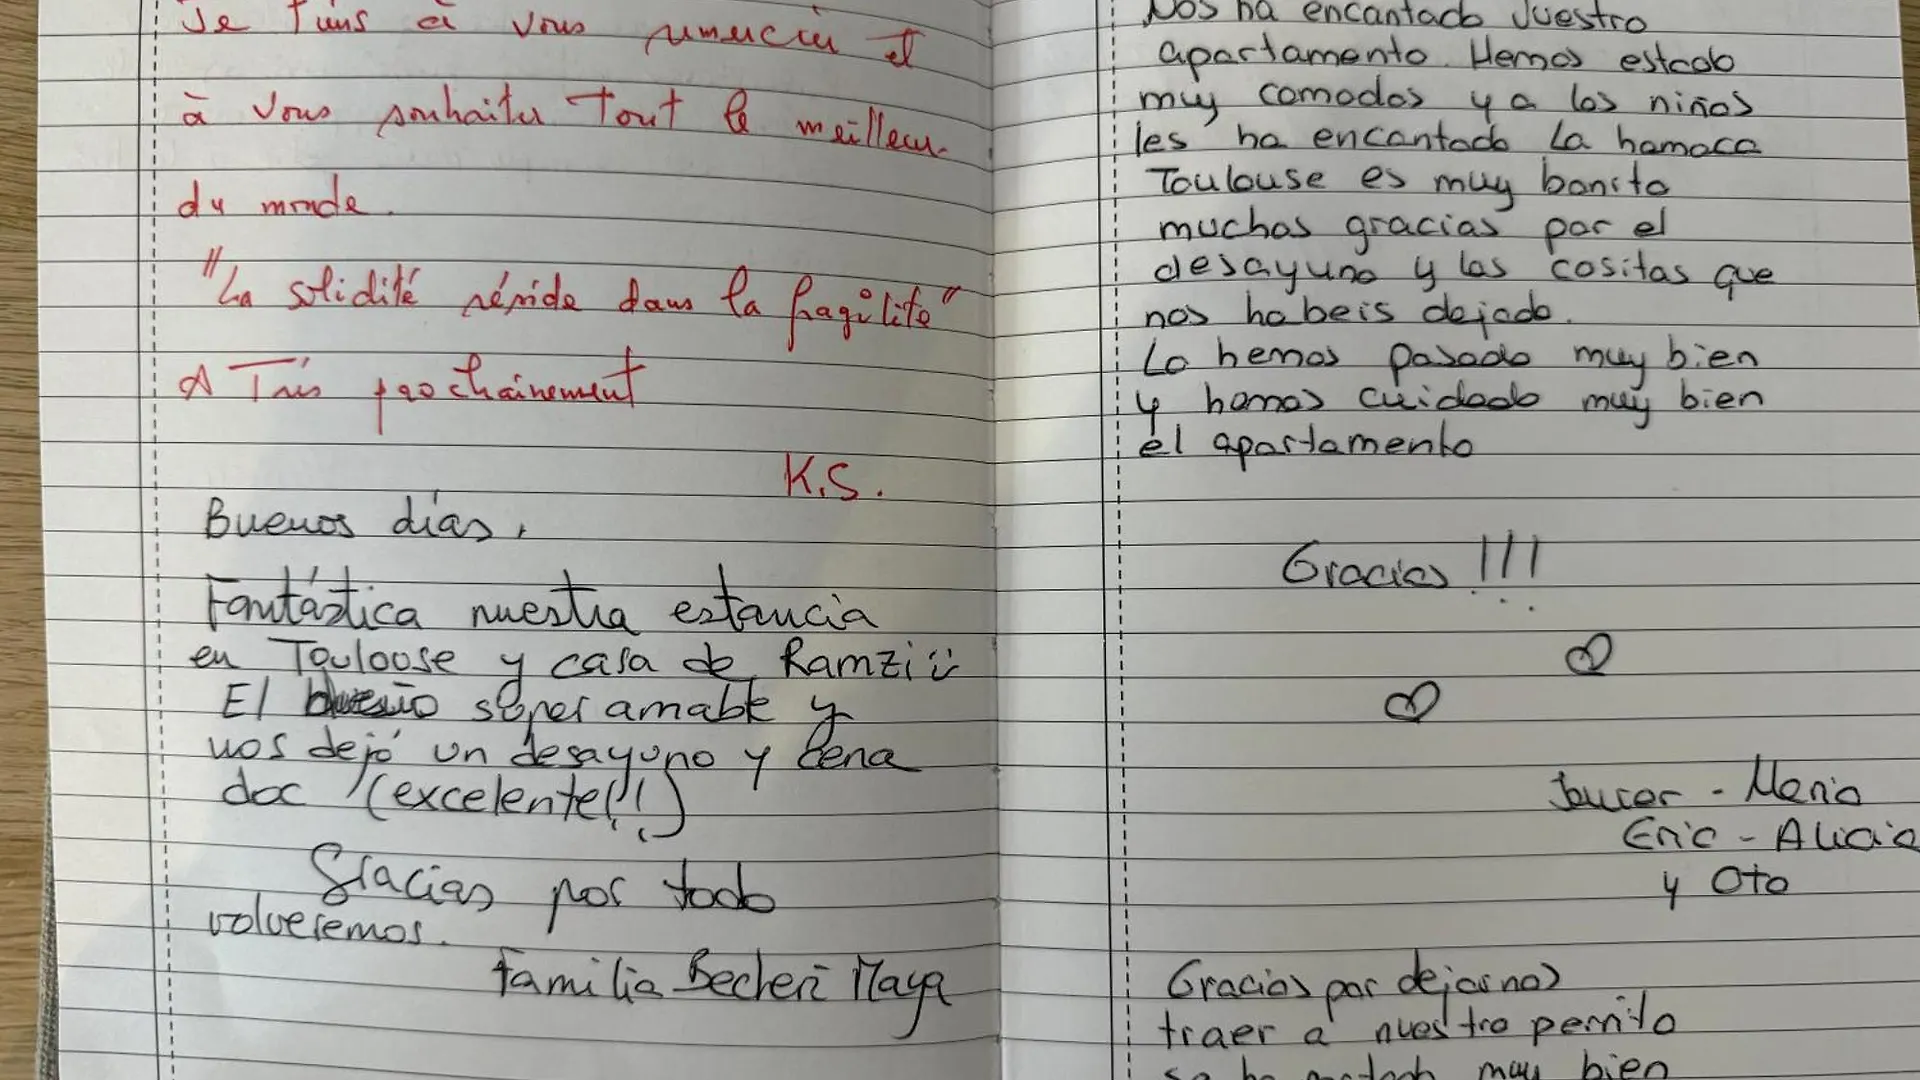 Je tiens à vous remercier et
à vous souhaiter tout le meilleur
du monde.
"La solidité réside dans la fragilité"
A Très prochainement
K.S.
Buenos días,
Fantástica nuestra estancia
en Touloose y casa de Ramzi
El super amable y
nos dejó un desayuno y cena
doc (excelente!!)
Gracias por todo
volveremos.
Familia Becheri Maya
Nos ha encantado vuestro
apartamento. Hemos estado
muy comodos y a los niños
les ha encantado la hamaca
Toulouse es muy bonito
muchas gracias por el
desayuno y las cositas que
nos habeis dejado.
Lo hemos pasado muy bien
y hemos cuidado muy bien
el apartamento
Gracias !!!
- Maria
Eric - Alicia
y Oto
Gracias por dejarnos
traer a nuestro perrito
se ha portado muy bien